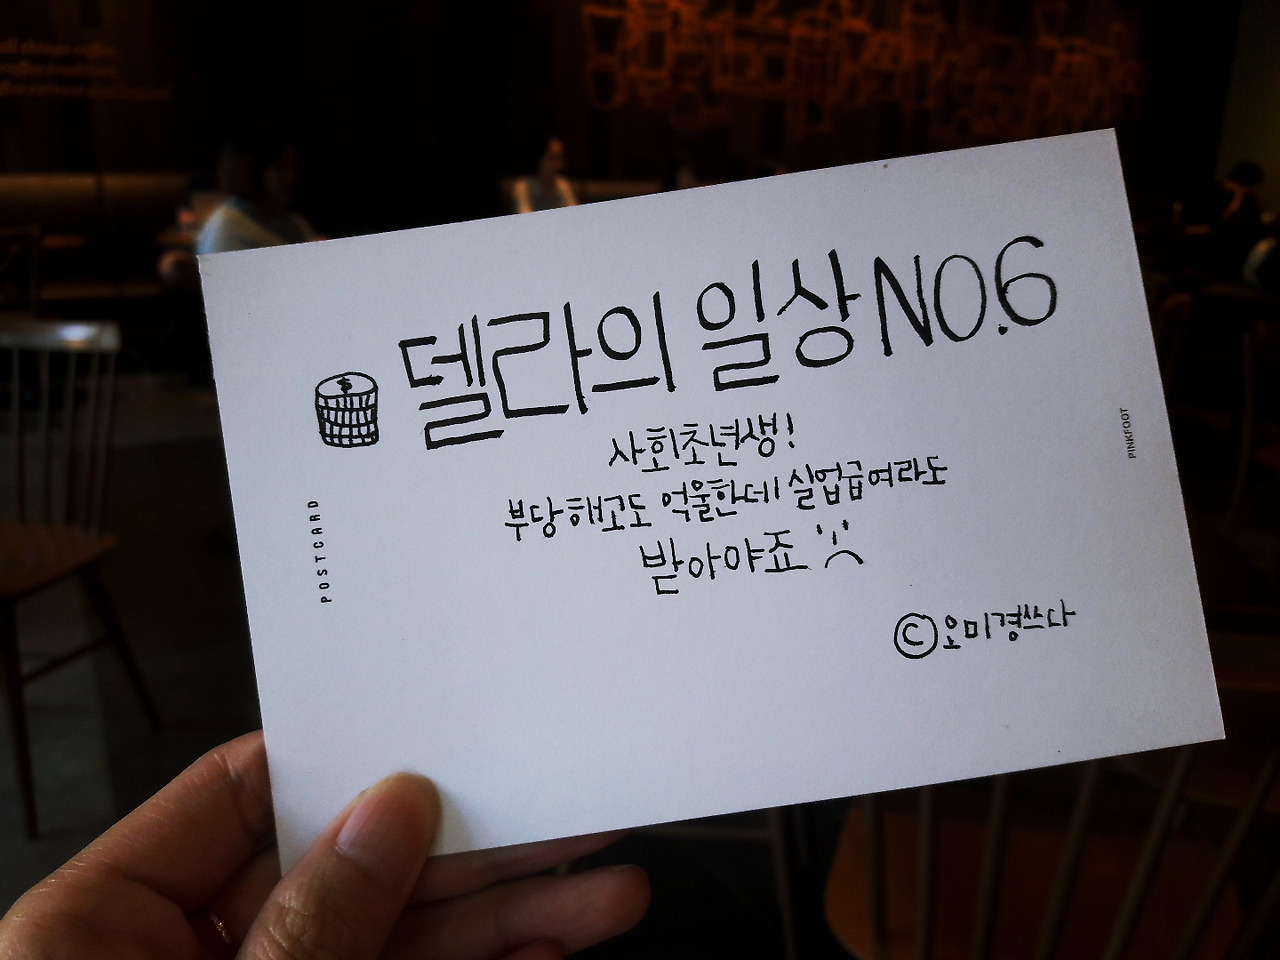 델라의 일상 NO.6
사회초년생!
부당해고도 억울한데 실업급여라도
받아야죠
©오미경쓰다
POSTCARD
PINKFOOT
$